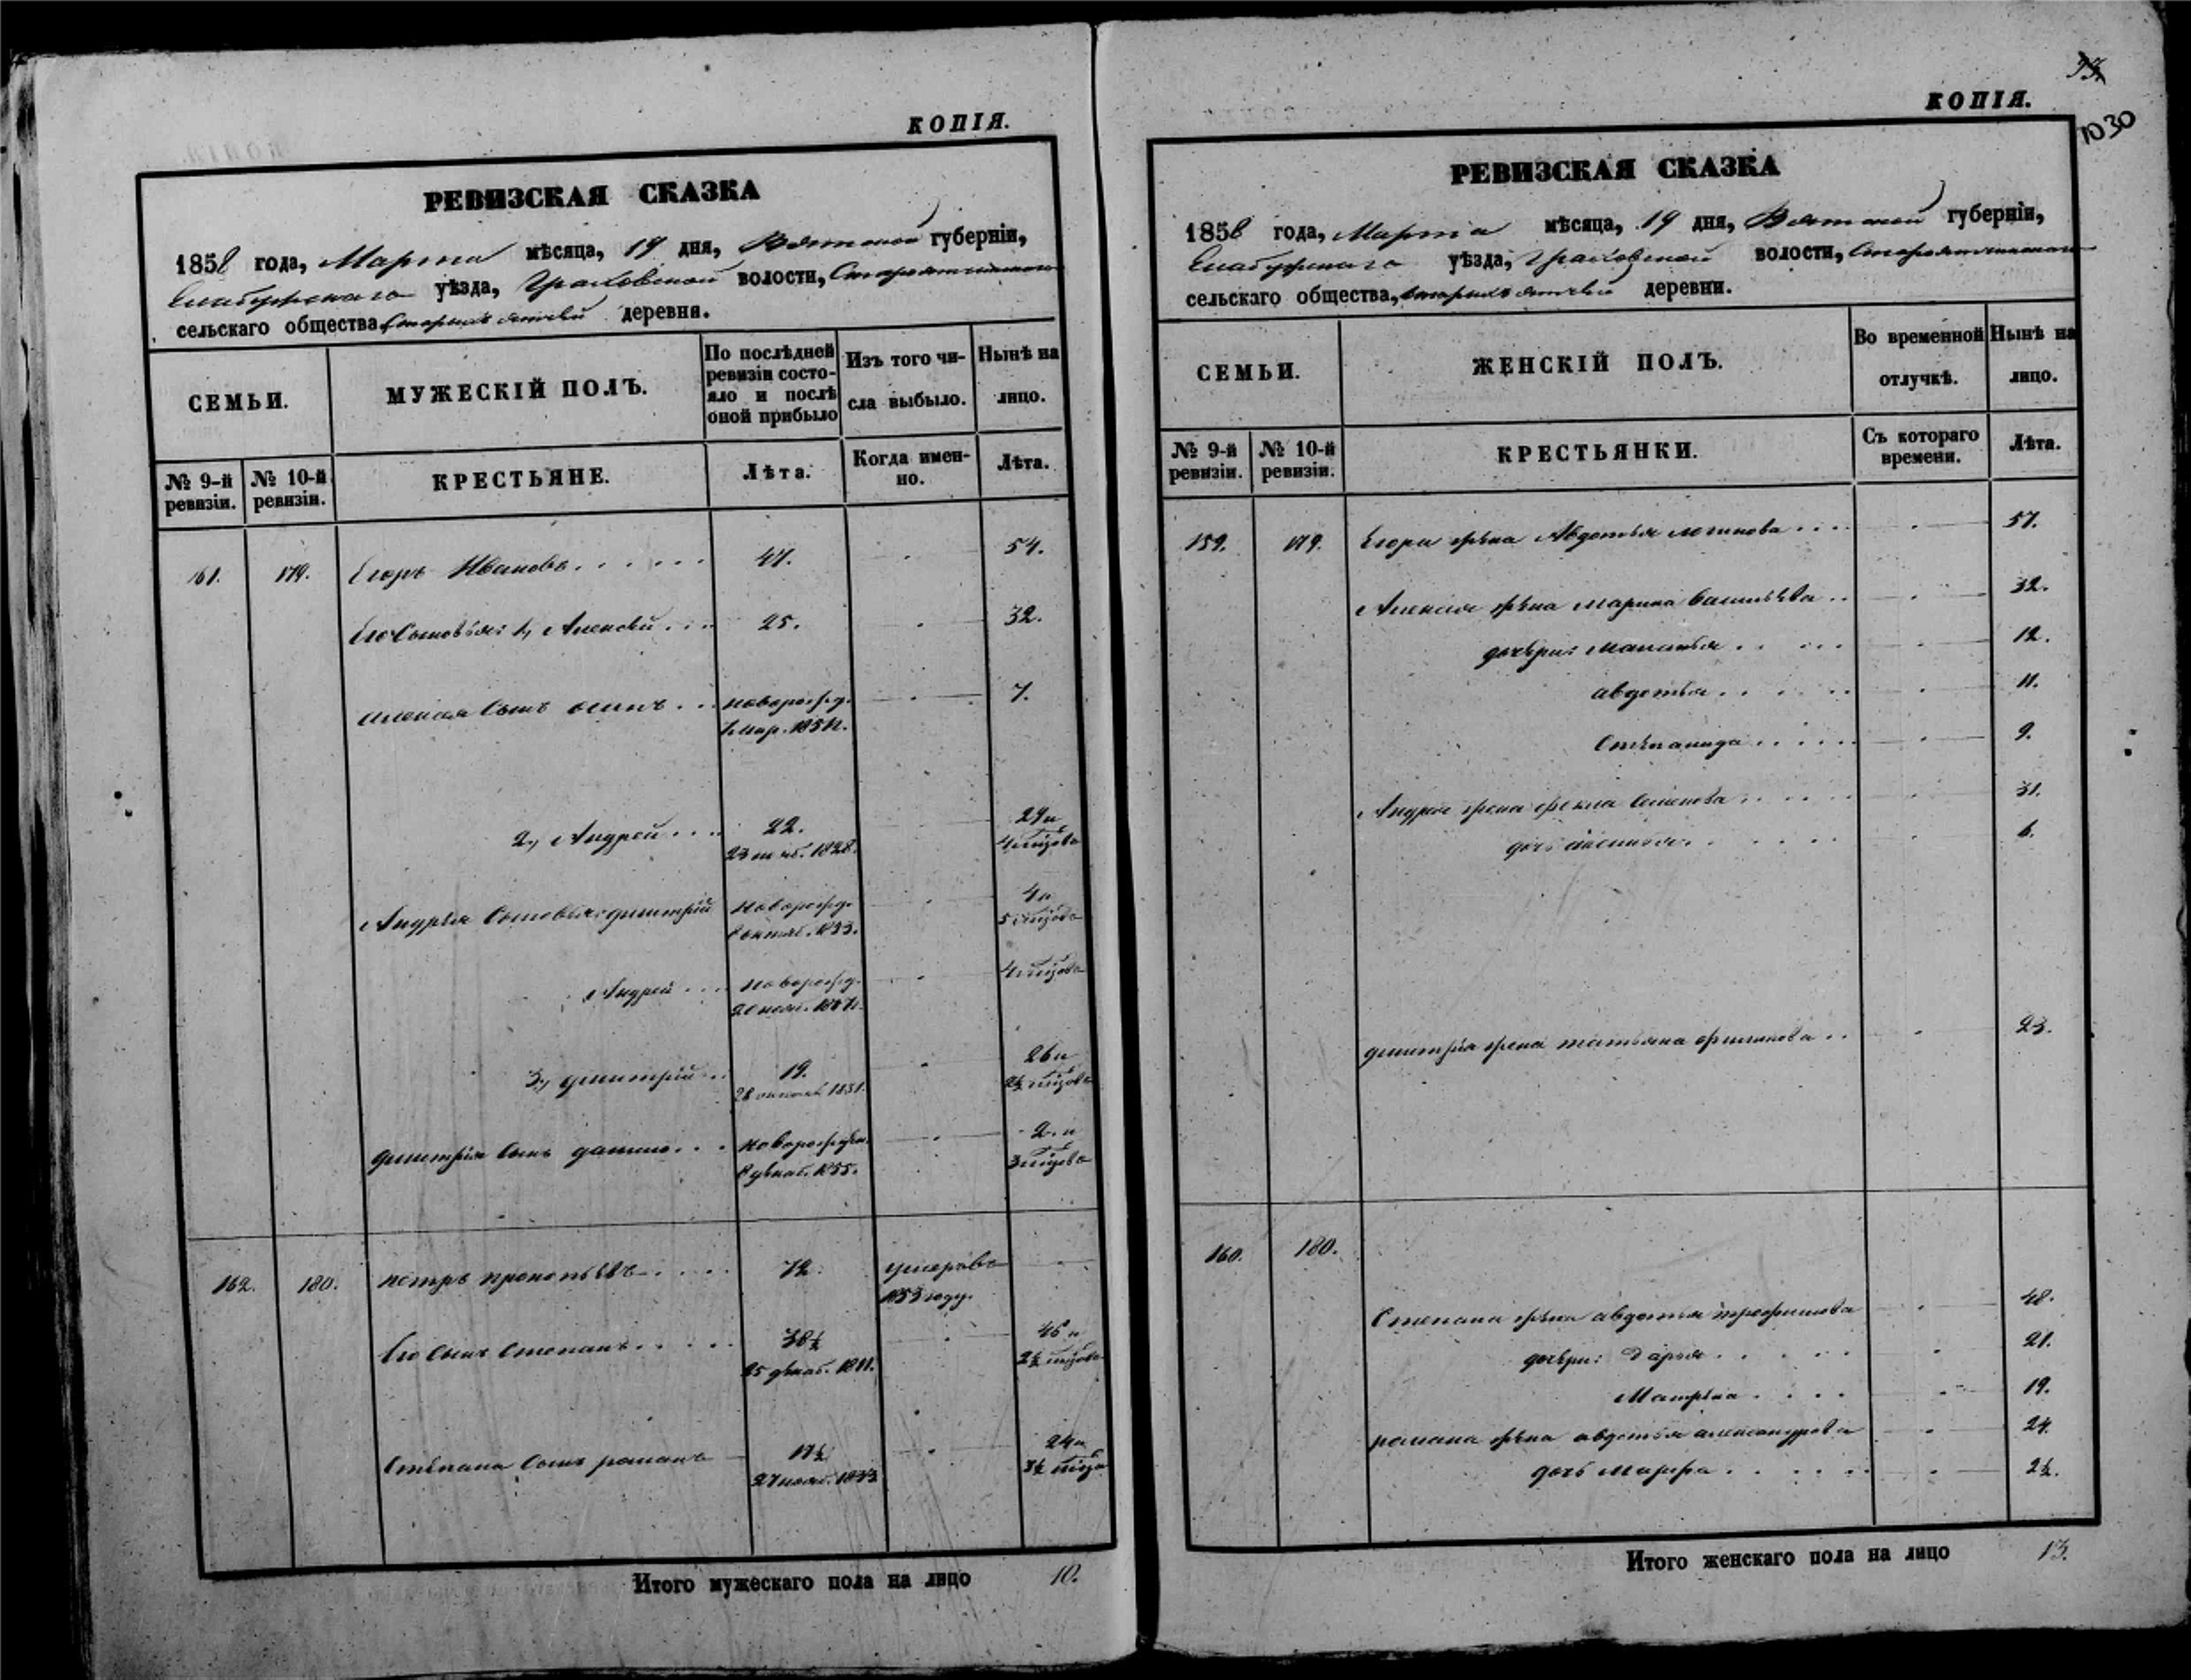 КОПІЯ.
РЕВИЗСКАЯ СКАЗКА
1858 года, Марта мѣсяца, 19 дня, Вятской губерніи,
Елабужскаго уѣзда, Граховской волости,
сельскаго общества, деревни.
СЕМЬИ.
МУЖЕСКІЙ ПОЛЪ.
По послѣдней ревизіи состояло и послѣ оной прибыло
Изъ того числа выбыло.
Нынѣ на лицо.
№ 9-й ревизіи.
№ 10-й ревизіи.
КРЕСТЬЯНЕ.
Лѣта.
Когда именно.
Лѣта.
161. 179. Егоръ Ивановъ . . . . . . 47. 54.
Его Сыновья: 1, Алексѣй . . . 25. 32.
Алексѣя Сынъ осипъ . . . новорожд. 7.
1851.
2, Андрей . . . . 22. 29 и
1828. 4 мѣсяцовъ
Андрѣя Сыновья: дмитрій новорожд. 4 и
октяб. 1853. 5 мѣсяцовъ
Андрей . . . . новорожд. 4 мѣсяцовъ
20 нояб. 1857.
3, дмитрій . . . 19. 26 и
28 1831.
дмитрія Сынъ данило . . . новорожден. 2 и
8 декаб. 1855. 3 мѣсяцовъ
162. 180. петръ прокопьевъ . . . . . 72. умеръ въ
1853 году.
Его Сынъ Степанъ . . . . . 38½ 46 и
25 декаб. 1811. 2½ мѣсяцовъ
Степана Сынъ романъ 17½ 24 и
27 нояб. 1833 3½ мѣсяц
Итого мужескаго пола на лицо 10.
1030
КОПІЯ.
РЕВИЗСКАЯ СКАЗКА
1858 года, Марта мѣсяца, 19 дня, Вятской губерніи,
Елабужскаго уѣзда, Граховской волости,
сельскаго общества, деревни.
СЕМЬИ.
ЖЕНСКІЙ ПОЛЪ.
Во временной отлучкѣ.
Нынѣ на лицо.
№ 9-й ревизіи.
№ 10-й ревизіи.
КРЕСТЬЯНКИ.
Съ котораго времени.
Лѣта.
159. 179. Егора жена Авдотья логинова . . . . 57.
Алексѣя жена марина васильева . . 32.
дочери: маланья . . . . . 12.
авдотья . . . . . . 11.
Степанида . . . . . 9.
Андрея жена фекла Семенова . . . . . 31.
дочь 6.
дмитрія жена татьяна филипова . . 23.
160. 180.
Степана жена авдотья трофимова 48.
дочери: Дарья . . . . . 21.
Матрена . . . . 19.
романа жена авдотья александрова 24.
дочь Марфа . . . . . . 2½.
Итого женскаго пола на лицо 13.